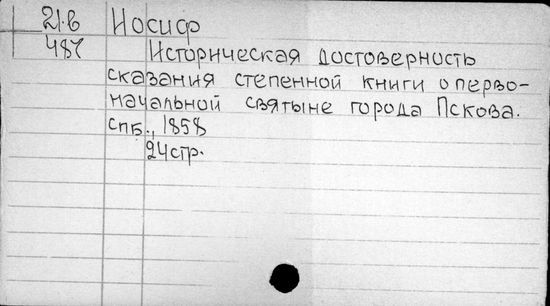 21.в Иосиф
487 Историческая достоверность
сказания степенной книги о перво-
начальной святыне города Пскова.
спб., 1858
24стр.